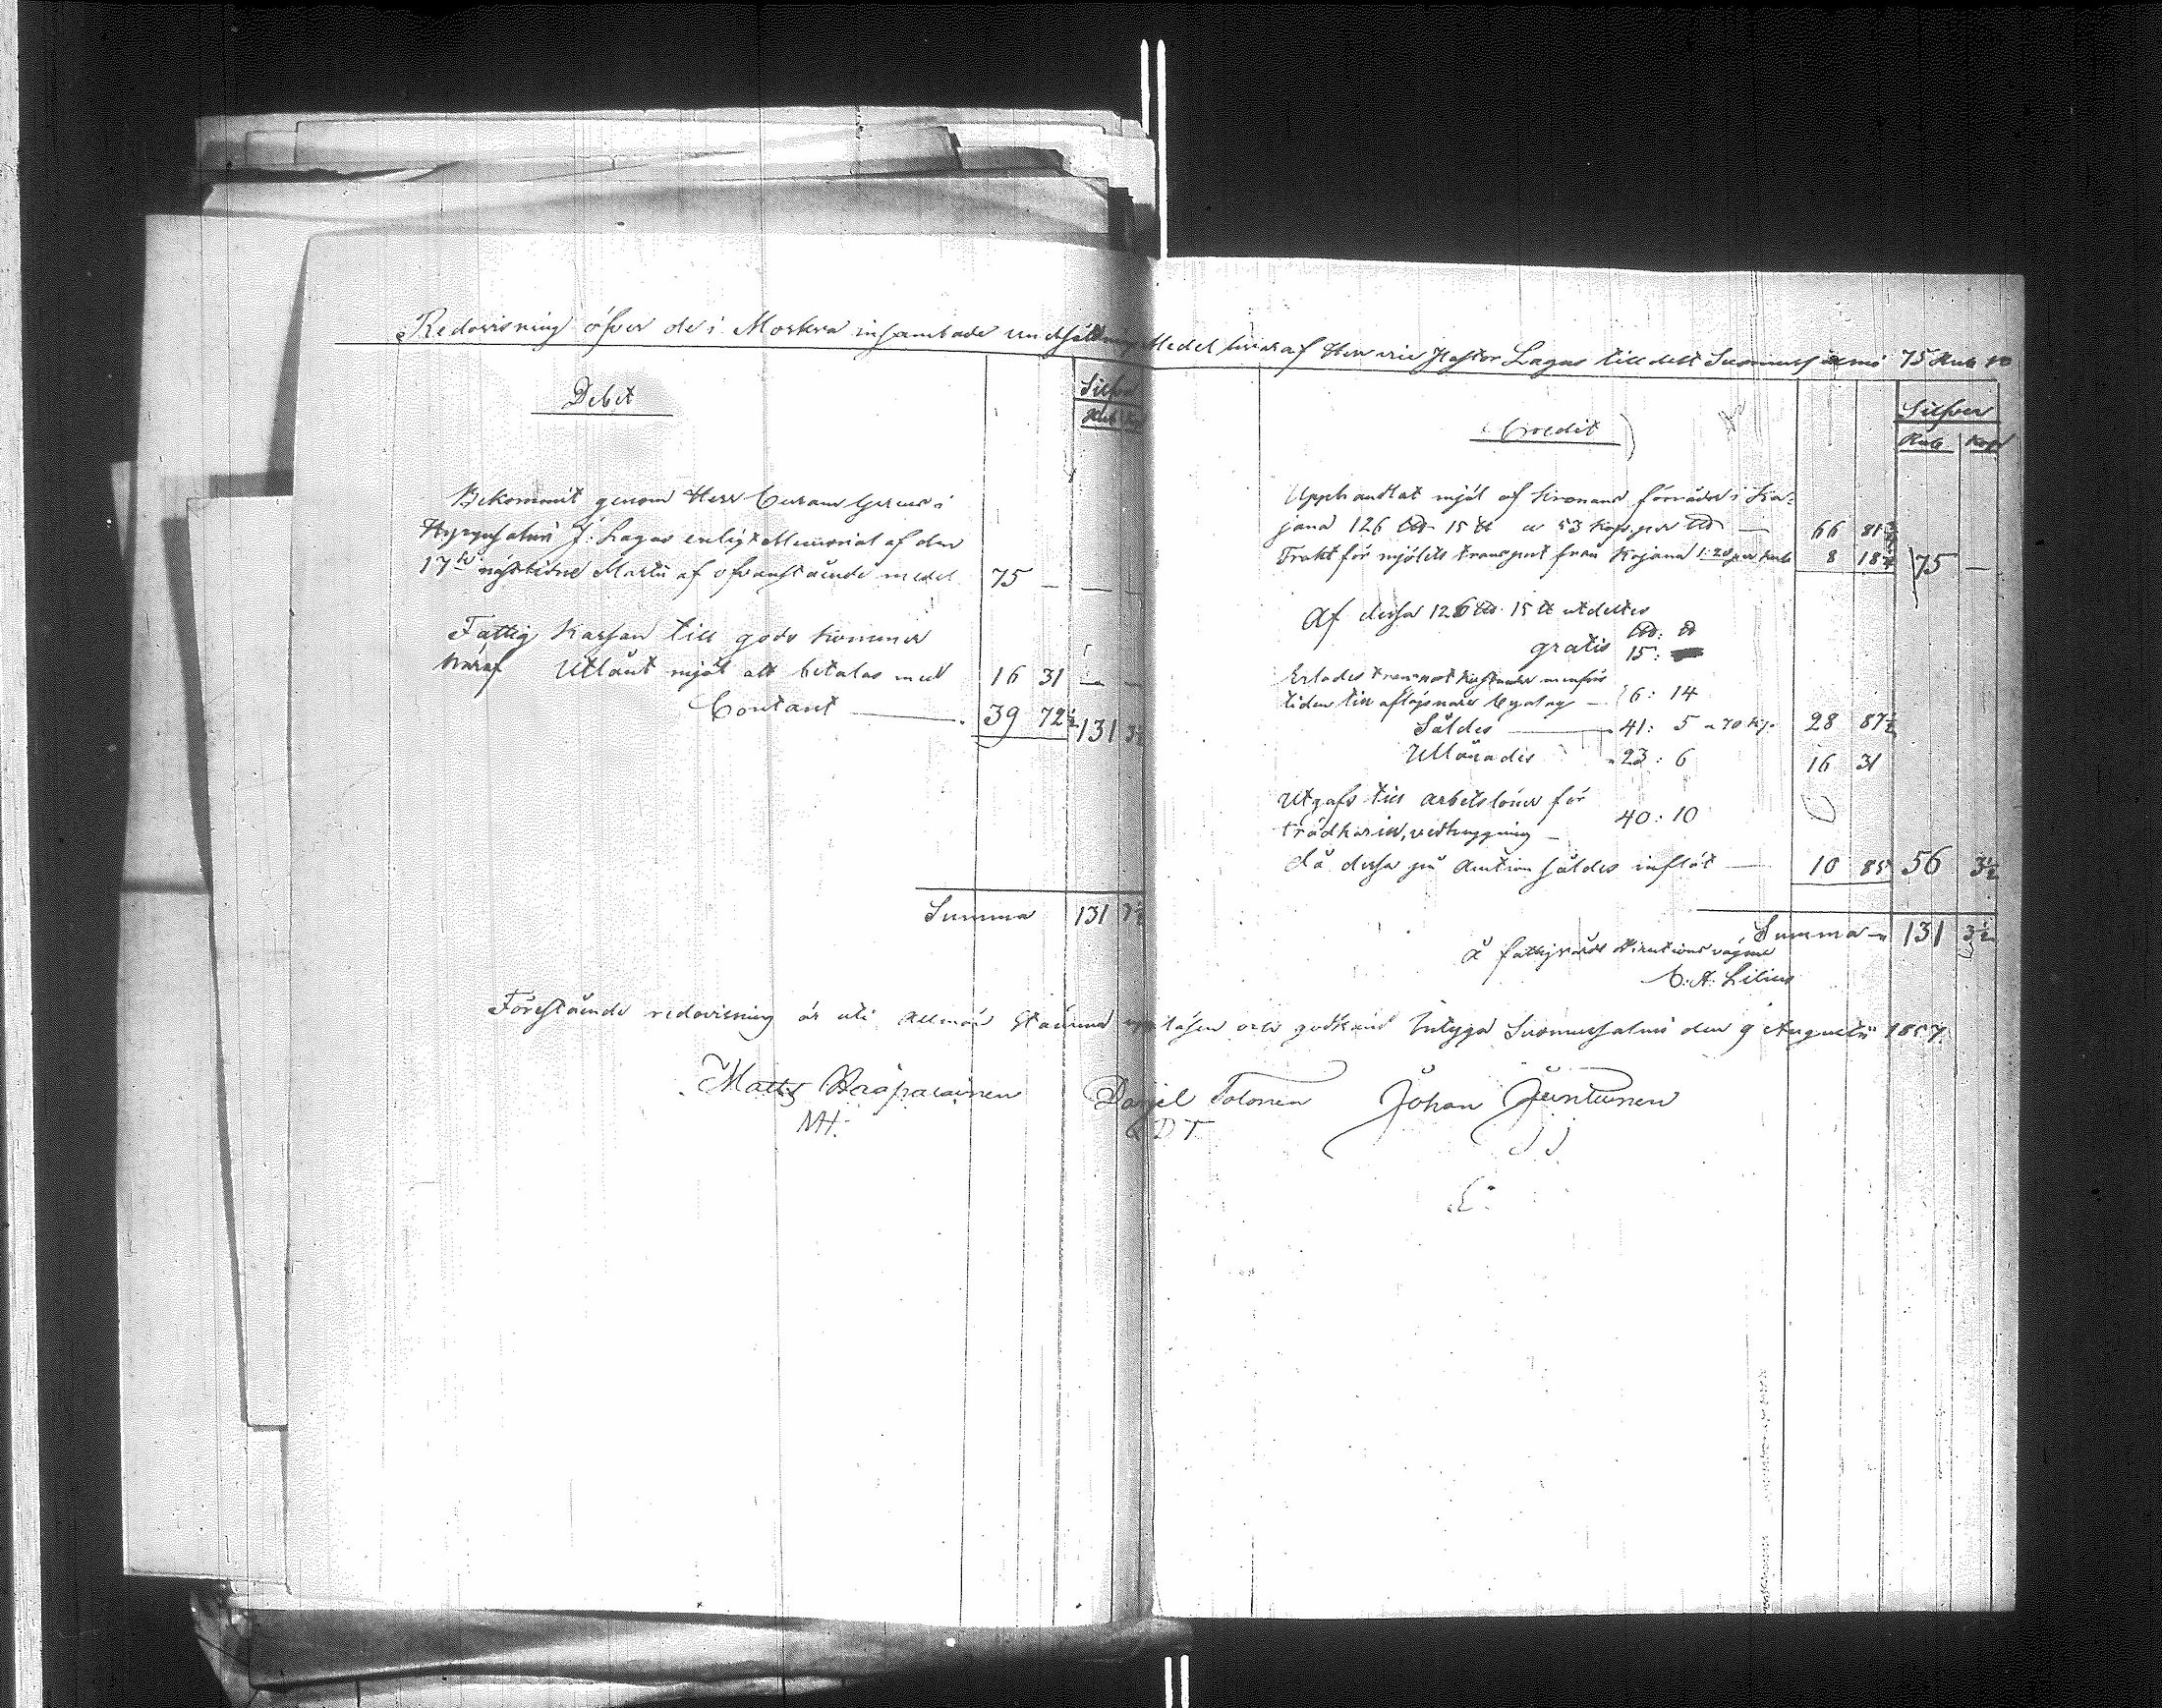 Redovisning öfver de i Moskva insamlade undhjelpnings Medel hvaraf Herr vice Pastor Lagus till delt Suomussalmi 75 Rub
Debet
Silfver
Rub Kop
Bekommit genom Herr
Hyrynsalmi J. Lagus enligt Memorial af den
17de nästledne Martii af ofvanstående medel 75 — — —
Fattig Kassan till godo kommer
häraf Utlånt mjöl att betalas med 16 31 — —
Contant — 39 72½ 131 3½
Summa 131 3½
Credit
Silfver
Rub Kop
Upphandlat mjöl af Kronans förråder i Ka-
jana 126 15 a 53 Kop. per — 66 81¾
Frakt för mjölets transport från Kajana 8 18¼ 75 —
Af dessa 126 15 utdeltes
gratis 15:
Erlades transport kostnader
tiden till 6: 14
Såldes — 41: 5 a 70 Kp. 28 87½
Utlånades 23: 6 16 31
Utgafs till arbetslöner för
vedhuggning — 40: 10
då dessa på Auction såldes inflöt — 10 85 56 3½
Summa 131 3½
å fattigvårds Direktionens vägnar
C. A. Lilius
Förestående redovisning är uti Allmän Stämma uppläsen och godkänd Intyga Suomussalmi den 9 Augusti 1857.
Matts Daniel Tolonen Johan Juntunen
MH. DT JJ